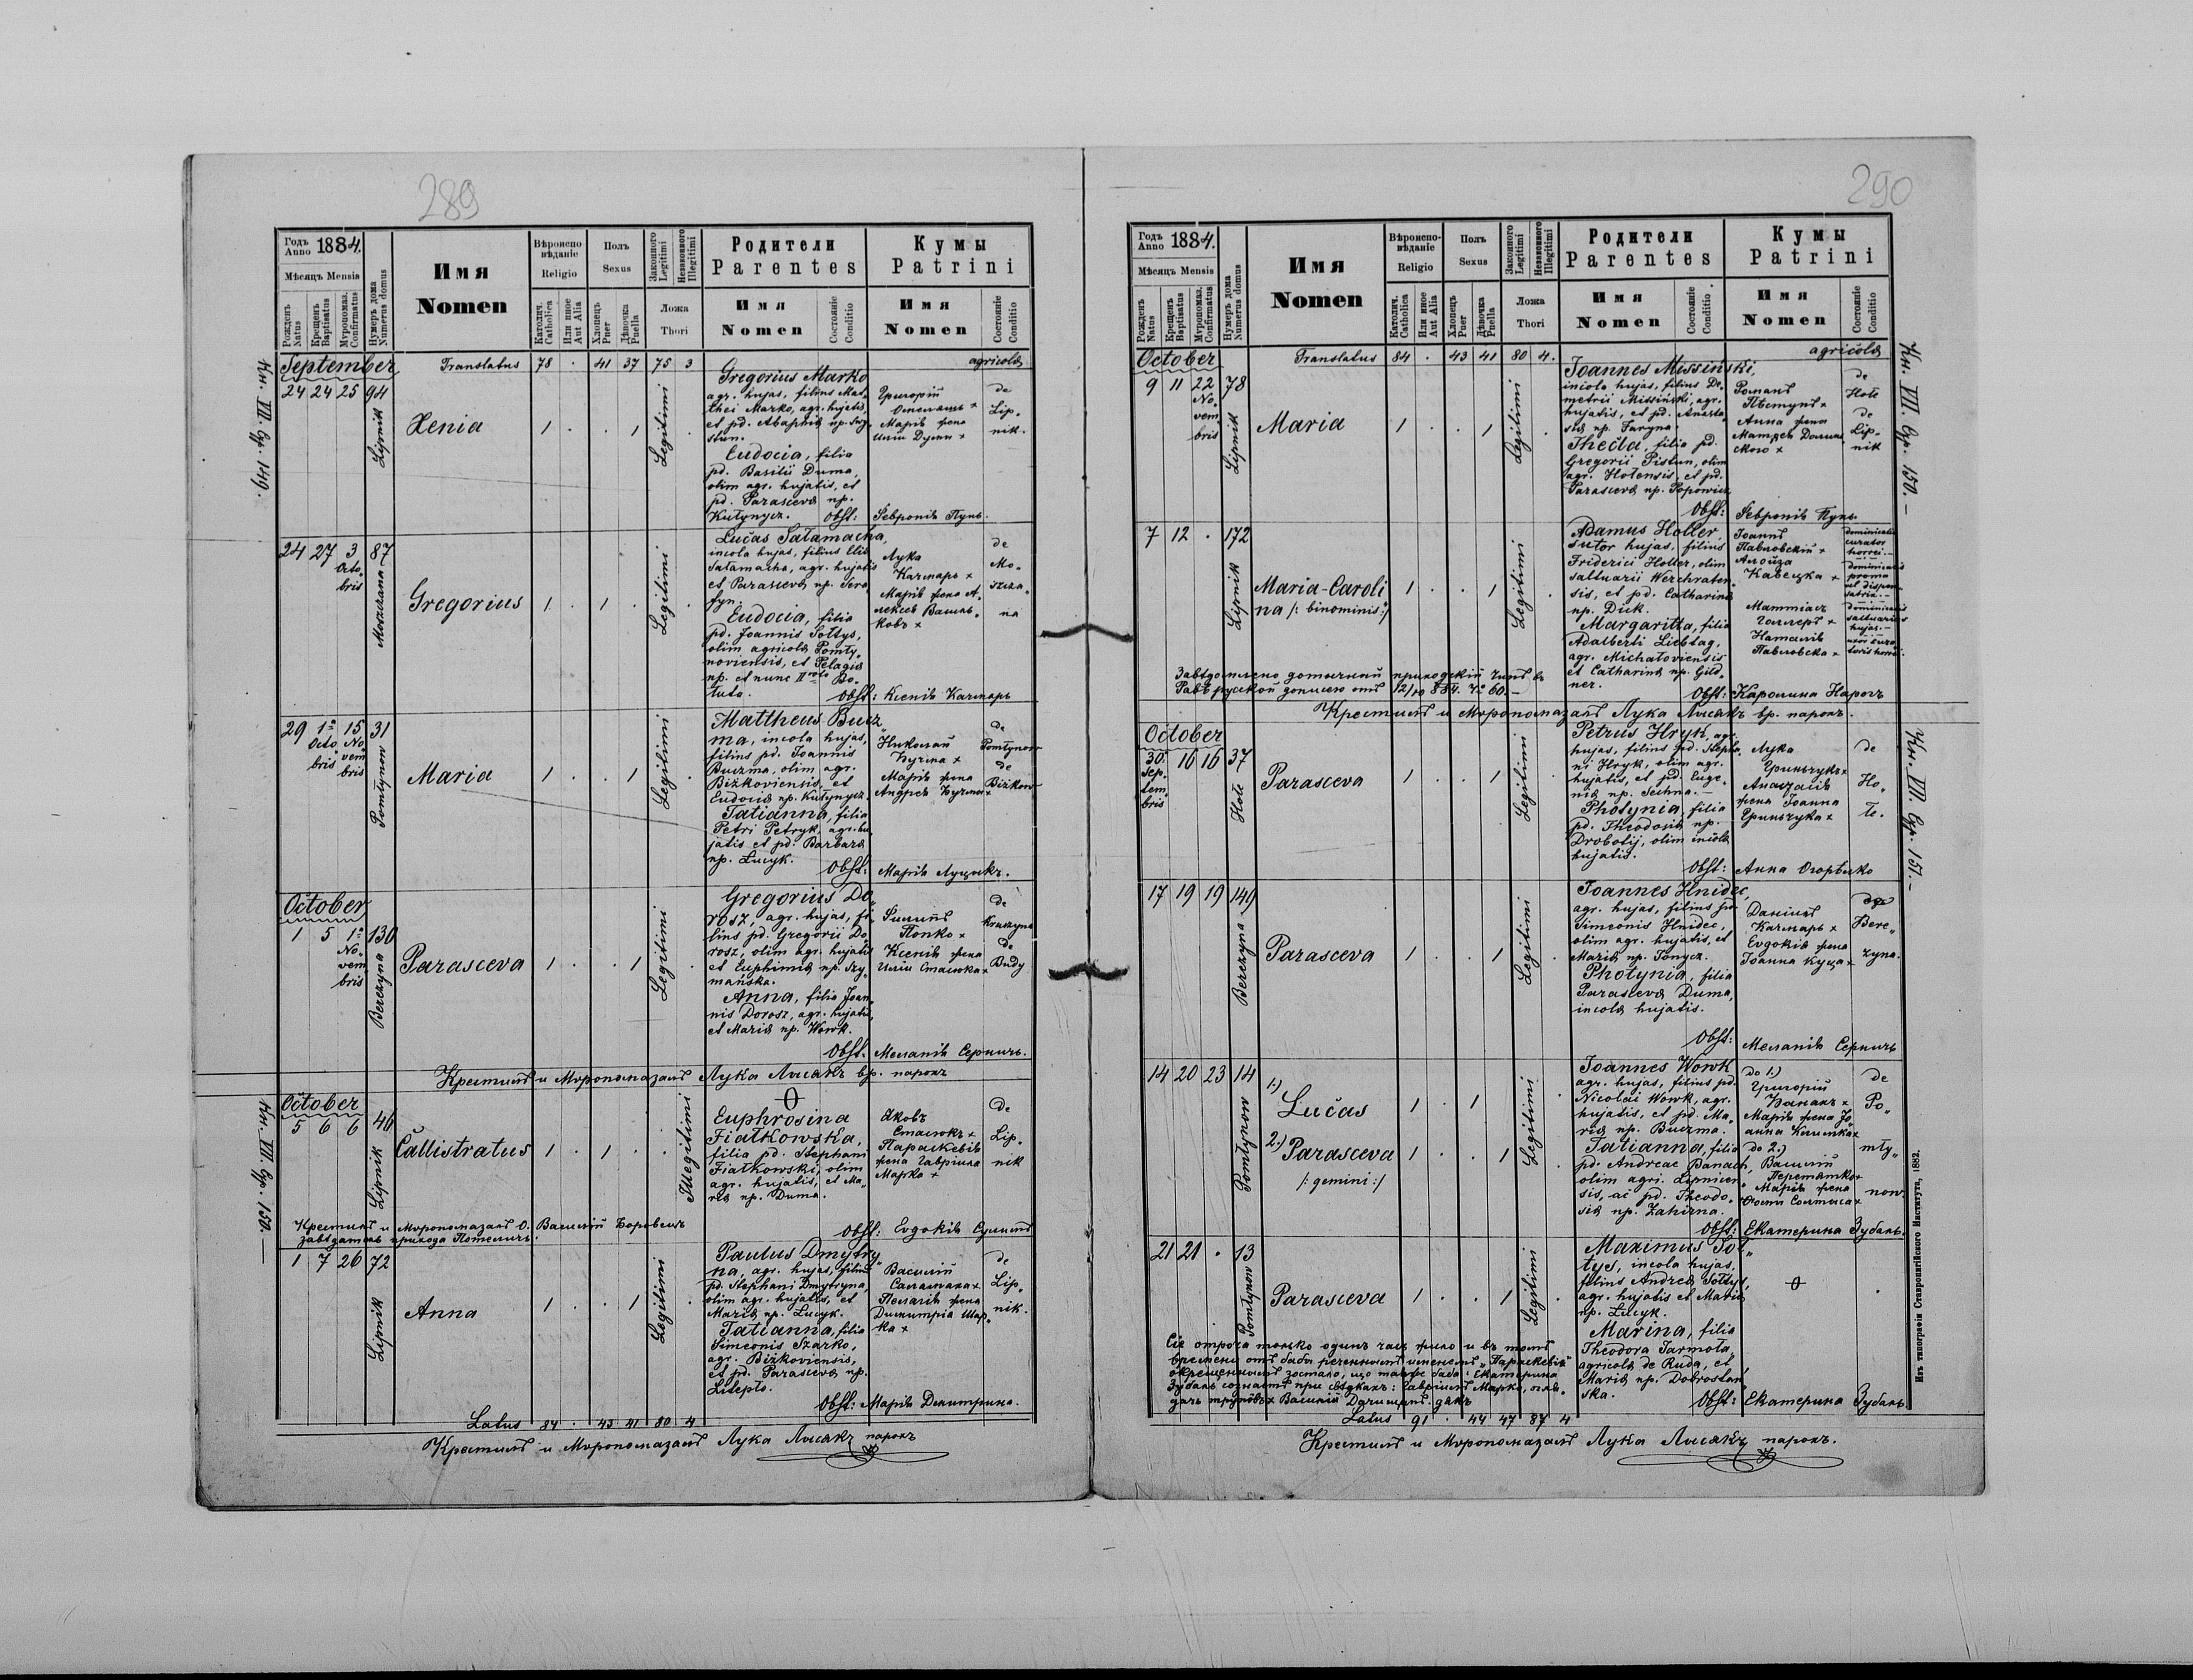 289
Годъ Anno 1884.
Мѣсяцъ Mensis
Рожденъ Natus
Крещенъ Baptisatus
Мѵропомаз. Confirmatus
Нумеръ дома Numerus domus
Имя
Nomen
Вѣроиспо-
вѣданіе
Religio
Католич. Catholica
Или иное Aut Alia
Полъ
Sexus
Хлопецъ Puer
Дѣвочка Puella
Законного Legitimi
Незаконного Illegitimi
Ложа
Thori
Родители
Parentes
Имя
Nomen
Состояніе Conditio
Кумы
Patrini
Имя
Nomen
Состояніе Conditio
September Translatus 78 . 41 37 75 3 agricolæ
Кн. VII. Ср. 149.
24 24 25 94
Lipnik
Xenia
1 . . 1
Legitimi
Gregorius Marko
agr. hujas, filius Mat-
thei Marko, agr. hujatis,
et pd.
Eudocia, filia
pd. Basilii Duma,
olim agr. hujatis, et
pd. Parascevæ np.
Kułynycz. Obst:
Григорій
Марія жена
Иліи Думы +
Севронія Пунь.
de
Lip„
nik.
24 27 3 87
Octo
bris
Moszczana
Gregorius
1 . 1 .
Legitimi
Lucas Sałamacha,
incola hujas, filius Eliæ
Sałamacha, agr. hujatis
et Parascevæ np. Sera
fyn.
Eudocia, filia
pd. Joannis Sołtys,
olim agricolæ Pomły„
noviensis, et Pelagiæ
np. et nunc IIvoto Bo„
tuto. Obst:
Лука
Качмарь +
Марія жена А„
лексея Василь„
ковъ +
Ксенія Качмарь
de
Mo„
szcza„
na
29 1º 15 31
Octo No
bris vem
bris
Pomłynow
Maria
1 . . 1
Legitimi
Mattheus Bucz„
ma, incola hujas,
filius pd. Joannis
Buczma, olim agr.
Biżkoviensis, et
Eudociæ np. Kułynycz.
Tatianna, filia
Petri Petryk, agr. hu
jatis et pd. Barbaræ
np. Łucyk. Obst:
Николай
Бучма +
Марія жена
Андрея Бучма +
Марія Луцикъ.
de
Pomłynow
de
Biżkow
October
1 5 1º 130
No„
vem
bris
Berczyna
Parasceva
1 . . 1
Legitimi
Gregorius Do„
rosz, agr. hujas, fi
lius pd. Gregorii Do
rosz, olim agr. hujatis
et Euphimiæ np. Szy
mańska.
Anna, filia Joan
nis Dorosz, agr. hujatis,
et Mariæ np. Wowk.
Obst.
Попко +
Ксенія жена
Иліи Стасюка +
Меланія Серничъ.
de
de
Budy
Крестилъ и Мѵропомазалъ Лука Лисакъ вр. парохъ
Кн. VII. Ср. 150.
October
5 6 6 46
Lipnik
Callistratus
1 . 1 .
Illegitimi
Euphrosina
Fiałkowska,
filia pd. Stephani
Fiałkowski, olim
agr. hujatis, et Ma„
riæ np. Duma.
Obst:
Яковъ
Стасюкъ +
Параскевія
жена Гавріила
Марко +
Евдокія
de
Lip„
nik
Крестилъ и Мѵропомазалъ О. Василій Боровецъ
завѣдатель прихода Потеличъ.
1 7 26 72
Lipnik
Anna
1 . . 1
Legitimi
Paulus Dmytry„
na, agr. hujas, filius
pd. Stephani Dmytryna,
olim agr. hujatis, et
Mariæ np. Łucyk.
Tatianna, filia
Simeonis Szarko,
agr. Biżkoviensis,
et pd. Parascevæ np.
Obst:
Василій
Саламаха +
Пелагія жена
Димитрія Шар„
ка +
Марія Демитрина.
de
Lip„
nik.
Latus 84 . 43 41 80 4
Крестилъ и Мѵропомазалъ Лука Лисакъ парохъ
290
Годъ Anno 1884.
Мѣсяцъ Mensis
Рожденъ Natus
Крещенъ Baptisatus
Мѵропомаз. Confirmatus
Нумеръ дома Numerus domus
Имя
Nomen
Вѣроиспо-
вѣданіе
Religio
Католич. Catholica
Или иное Aut Alia
Полъ
Sexus
Хлопецъ Puer
Дѣвочка Puella
Законного Legitimi
Незаконного Illegitimi
Ложа
Thori
Родители
Parentes
Имя
Nomen
Состояніе Conditio
Кумы
Patrini
Имя
Nomen
Состояніе Conditio
October Translatus 84 . 43 41 80 4. agricolæ
Кн. VII. Ср. 150.
9 11 22 78
No„
vem
bris
Lipnik
Maria
1 . . 1
Legitimi
Joannes Missiński,
incola hujas, filius De„
metrii Missiński, agr.
hujatis, et pd. Anasta„
siæ np. Faryna.
Thecla, filia pd.
Gregorii Pistun, olim
agr. Hotensis, et pd.
Parascevæ np. Popowicz
Obst:
Романъ
Пѣстунъ +
Анна жена
Матѳея Долин„
ского +
Севронія Пунь.
de
Hole
de
Lip„
nik
7 12 . 172
Lipnik
Maria-Caroli
na /: binominis :/
1 . . 1
Legitimi
Adamus Holler,
sutor hujas, filius
Friderici Holler, olim
saltuarii Werchraten„
sis, et pd. Catharinæ
np. Dick.
Margaritta, filia
Adalberti Liebtag,
agr. Michałoviensis
et Catharinæ np. Gild„
ner. Obst:
Іоаннъ
Павловскій +
Алойза
Кавецка +
Маттіасъ
Галлеръ +
Наталія
Павловска +
Каролина Нарогъ
dominicalis
curator
horrei.
dominicalis
proma
vel dispen„
satrix.
dominicalis
saltuarius
hujas.
uxor cura„
toris horrei
Завѣдомлено дотычный приходскій чинъ въ
Равѣ русской дописею отъ 12/10 884. Ч. 60.
Крестилъ и Мѵропомазалъ Лука Лисакъ вр. парохъ.
Кн. VII. Ср. 151.
October
30. 16 16 37
Sep„
tem„
bris
Hole
Parasceva
1 . . 1
Legitimi
Petrus Hryk, agr.
hujas, filius pd. Stepha
ni Hryk, olim agr.
hujatis, et pd. Euge„
niæ np. Sechna.
Photynia, filia
pd. Theodosiæ np.
Drobotij, olim incolæ
hujatis. Obst:
Лука
Гринчукъ +
жена Іоанна
Гринчука +
Анна
de
Ho„
le.
17 19 19 149
Berczyna
Parasceva
1 . . 1
Legitimi
Joannes Hnidec,
agr. hujas, filius pd.
Simeonis Hnidec,
olim agr. hujatis, et
Mariæ np. Tonycz.
Photynia, filia
Parascevæ Duma,
incolæ hujatis.
Obst:
Даніилъ
Качмарь +
Евдокія жена
Іоанна Куца +
Меланія Серничъ
de
Bere„
zyna.
14 20 23 14
Pomłynow
1) Lucas
2.) Parasceva
/: gemini :/
1 . 1 .
1 . . 1
Legitimi
Joannes Wowk
agr. hujas, filius pd.
Nicolai Wowk, agr.
hujatis, et pd. Ma„
riæ np. Buczma.
Tatianna, filia
pd. Andreae Banach,
olim agri. Lipnicen„
sis, ac pd. Theodo„
siæ np. Zahirna.
Obst:
до 1.)
Григорій
Банахъ +
Марія жена Іо„
анна
до 2.)
Василій
Марія жена
Екатерина Зубаль.
de
Po„
mły„
now.
21 21 . 13
Pomłynow
Parasceva
1 . . 1
Legitimi
Maximus Soł„
tys, incola hujas,
filius Andreæ Sołtys,
agr. hujatis et Mariæ
np. Łucyk.
Marina, filia
Theodora Jarmoła,
agricolæ de Ruda, et
Mariæ np. Dobrostan„
ska. Obst:
Екатерина Зубаль.
Сіе отроча только одинъ часъ жило и въ томъ
времени отъ бабы реченнымъ именемъ „Параскевія"
окрещеннымъ зостало, що также баба: Екатерина
Зубаль сознаетъ при свѣдкахъ: Гавріилъ Марко,
Latus 91 . 44 47 87 4
Крестилъ и Мѵропомазалъ Лука Лисакъ парохъ.
Изъ типографіи Ставропигійского Института, 1882.